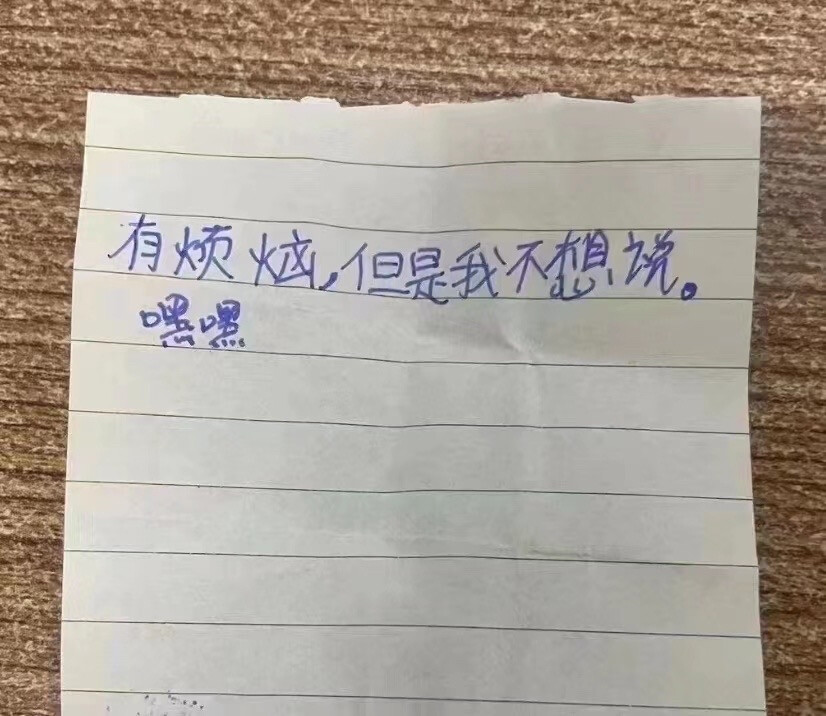 有烦恼,但是我不想说。
嘿嘿